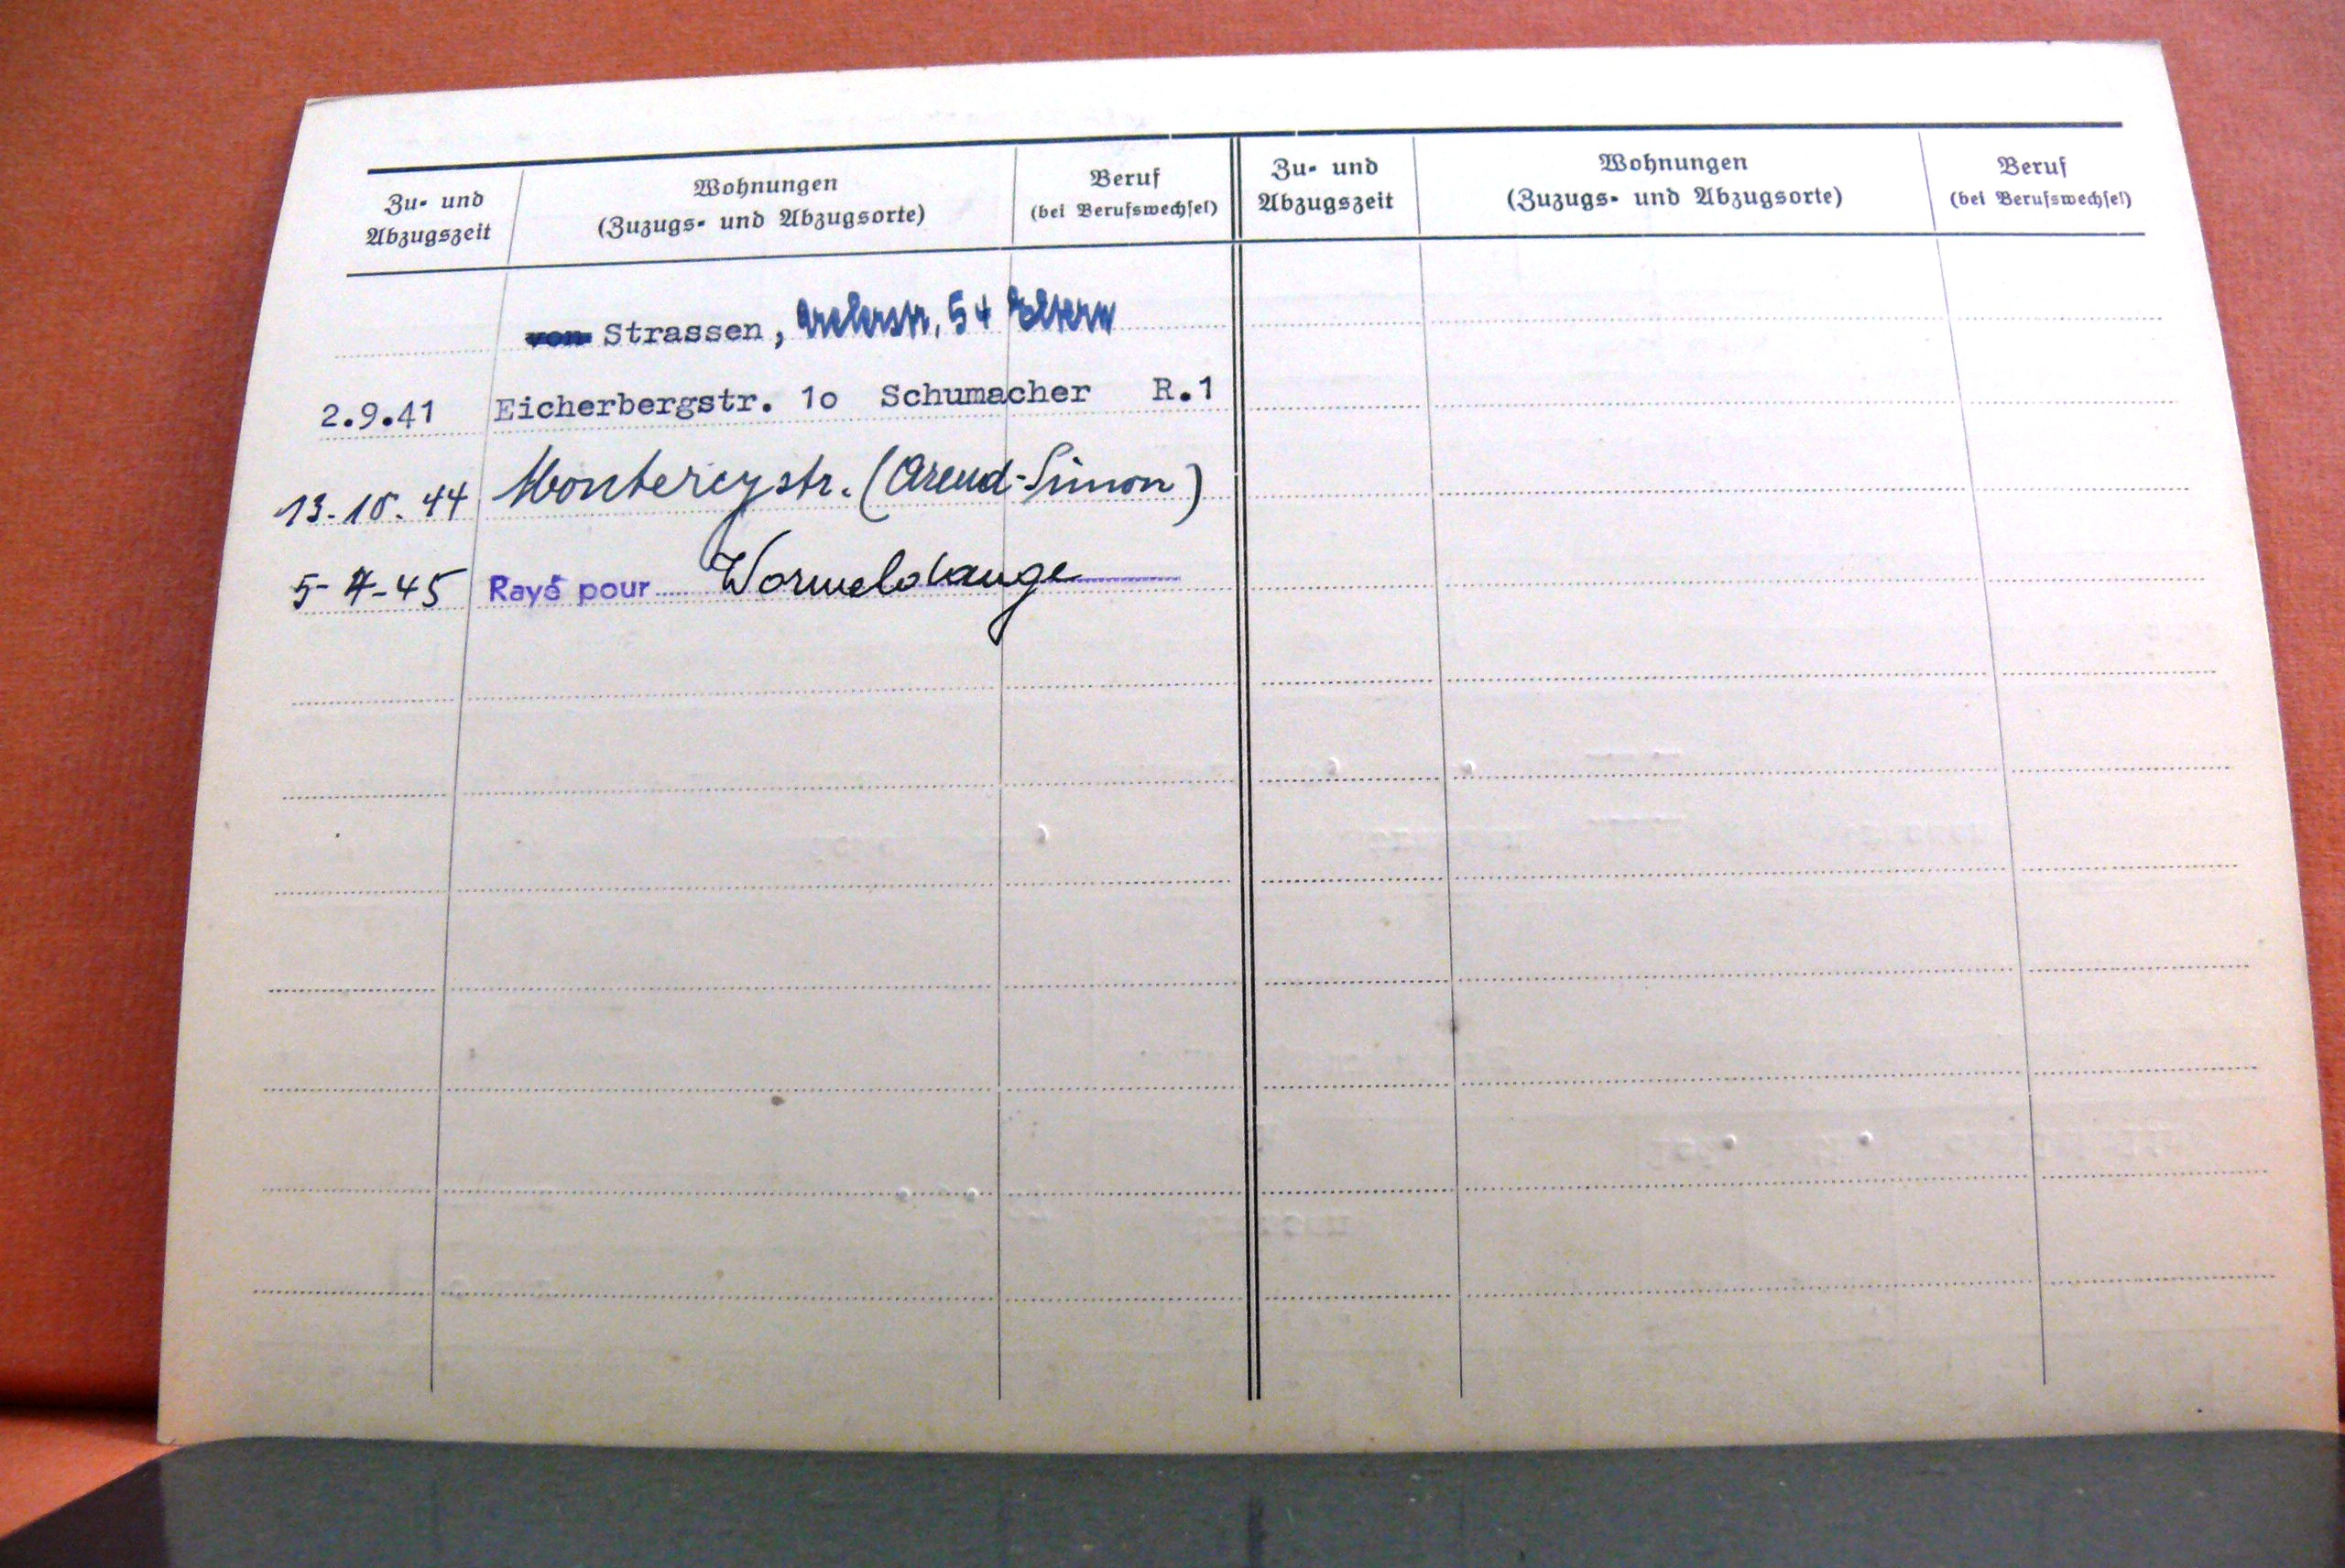 Zu- und Abzugszeit
Wohnungen (Zuzugs- und Abzugsorte)
Beruf (bei Berufswechsel)
Zu- und Abzugszeit
Wohnungen (Zuzugs- und Abzugsorte)
Beruf (bei Berufswechsel)
von Strassen, Arelerstr. 54 Eltern
2.9.41 Eicherbergstr. 10 Schumacher R.1
13.10.44 Montereystr. (Arend-Simon)
5-7-45 Rayé pour Wormeldange